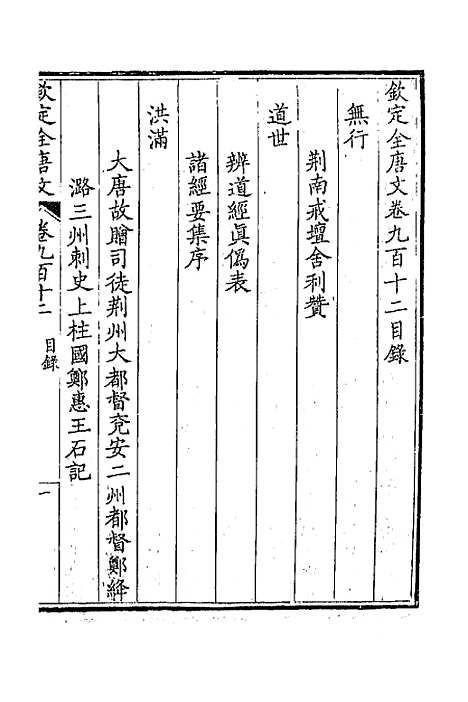 欽定全唐文卷九百十二目錄
無行
荆南戒壇舍利贊
道世
辨道經眞僞表
諸經要集序
洪滿
大唐故贈司徒荆州大都督兗安二州都督鄭絳
潞三州刺史上柱國鄭惠王石記
欽定全唐文 卷九百十二 目錄 一